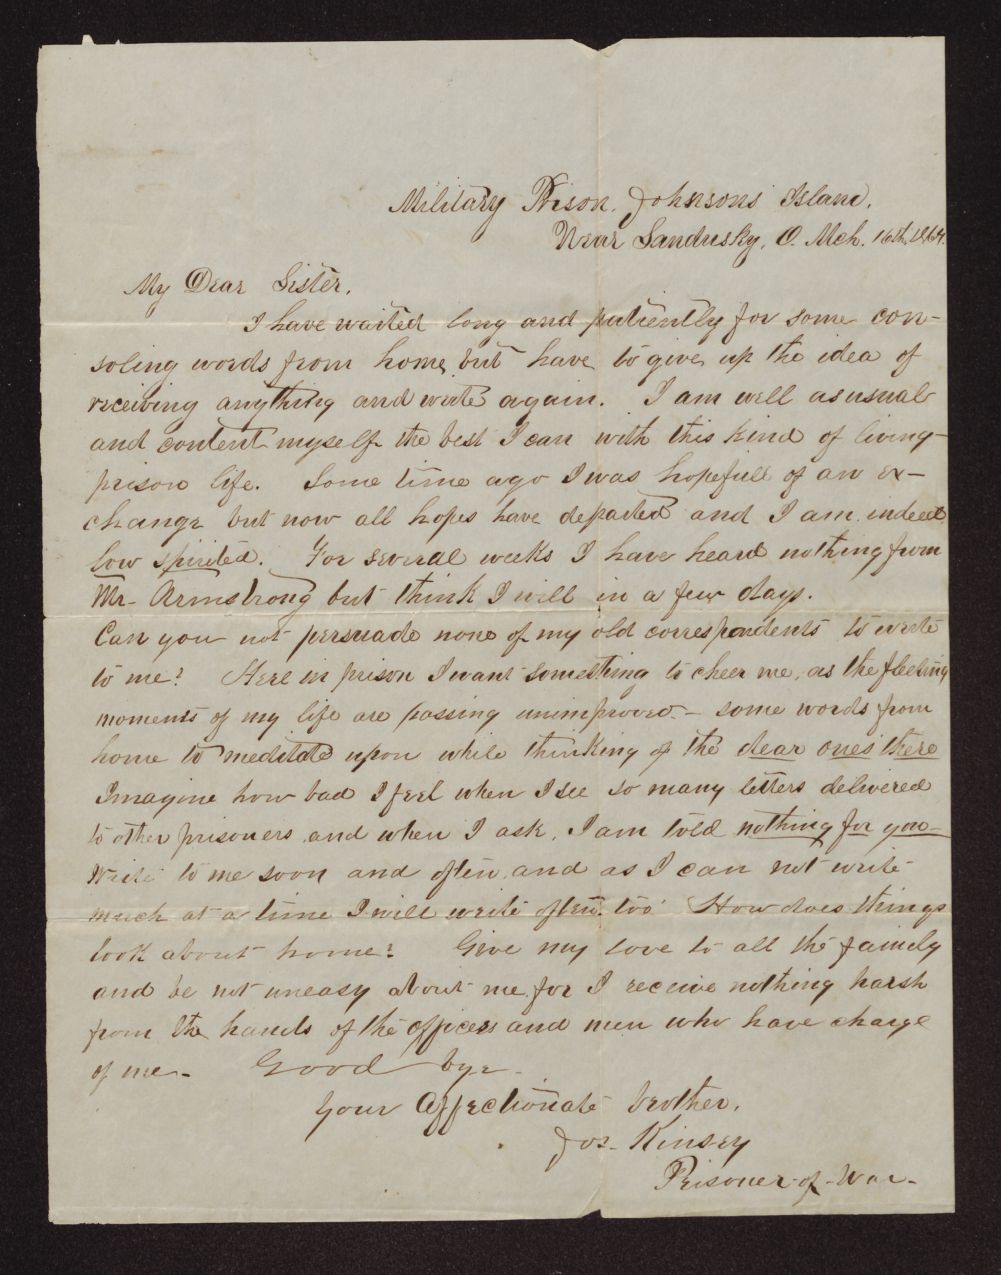 Military Prison, Johnsons Island,
Near Sandusky, O. Mch. 16th, 1864.
My Dear Sister,
I have waited long and patiently for some con-
soling words from home, but have to give up the idea of
receiving anything and write again. I am well as usual
and content myself the best I can with this kind of living-
prison life. Some time ago I was hopefull of an ex-
change but now all hopes have departed and I am indeed
low spirited. For several weeks I have heard nothing from
Mr. Armstrong but think I will in a few days.
Can you not persuade none of my old correspondents to write
to me? Here in prison I want something to cheer me, as the fleeting
moments of my life are passing unimproved - some words from
home to meditate upon while thinking of the dear ones there
Imagine how bad I feel when I see so many letters delivered
to other prisoners and when I ask, I am told nothing for you-
Write to me soon and often, and as I can not write
much at a time I will write often too. How does things
look about home? Give my love to all the family
and be not uneasy about me, for I receive nothing harsh
from the hands of the officers and men who have charge
of me- Good bye-
Your affectionate brother,
Jos. Kinsey
Prisoner-of-War-